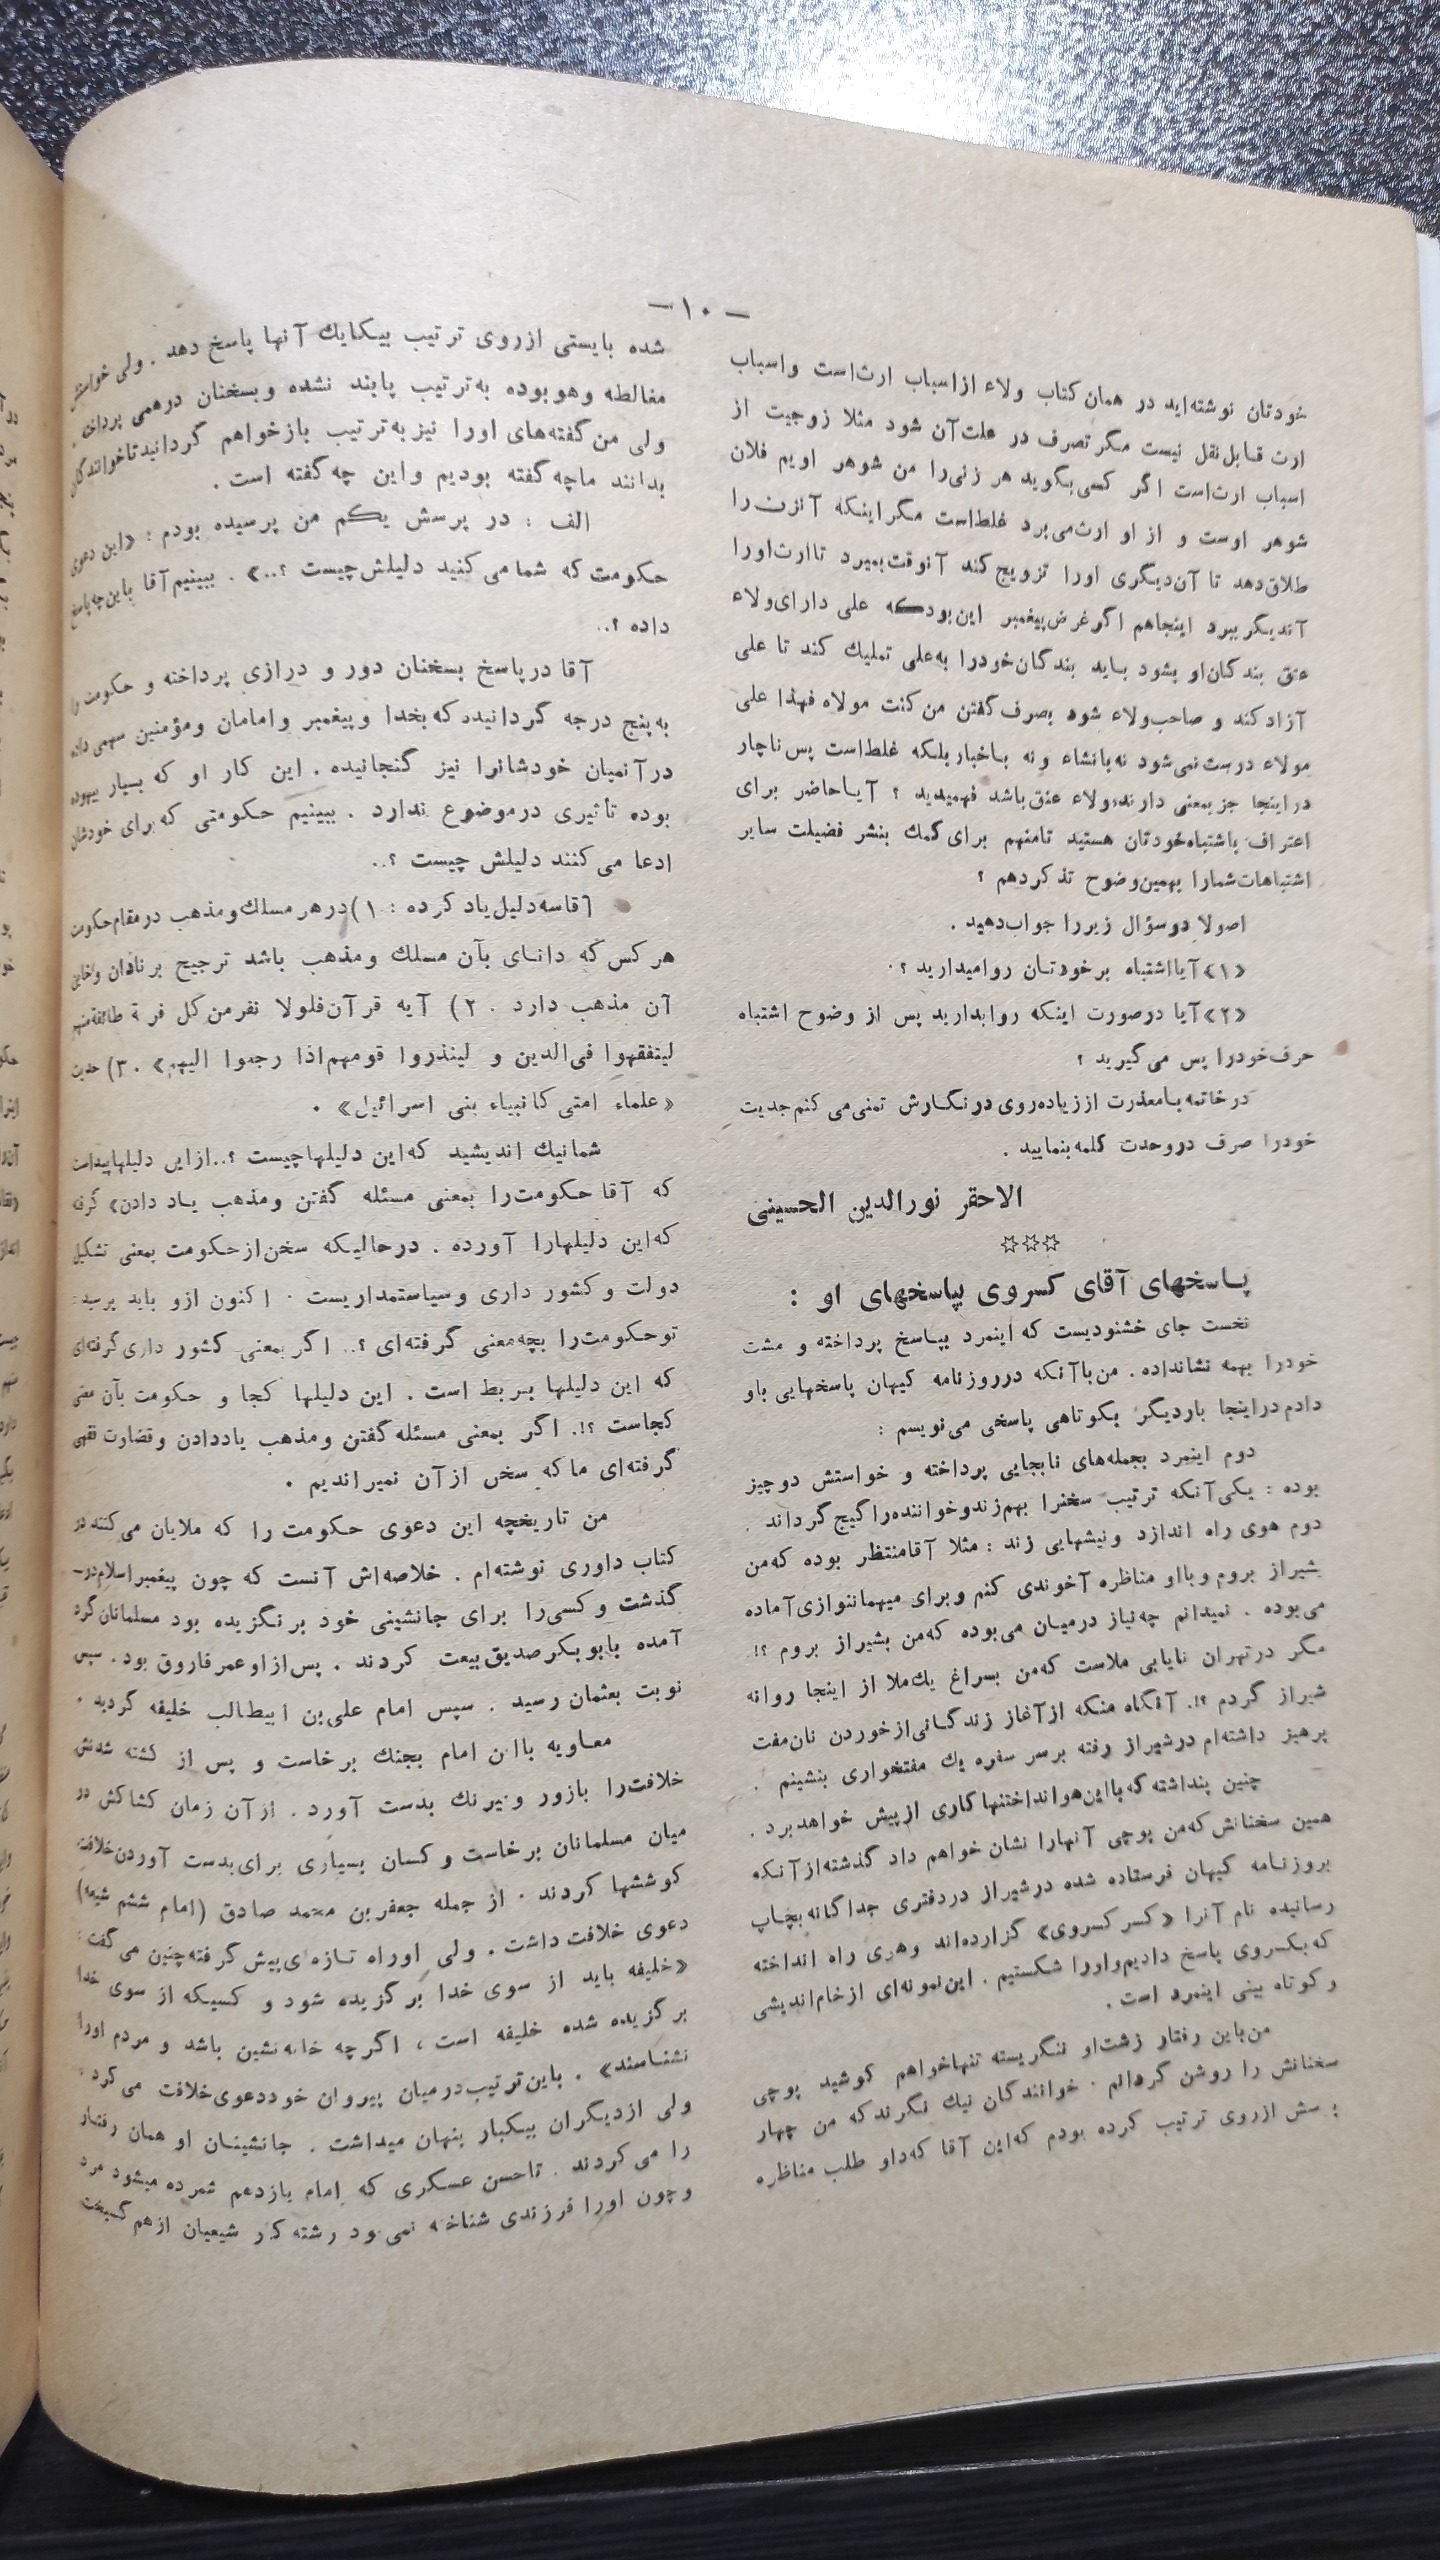 — ۱۰ —
خودتان نوشته‌اید در همان کتاب ولاء از اسباب ارث است و اسباب
ارث قابل نقل نیست مگر تصرف در علت آن شود مثلا زوجیت از
اسباب ارث است اگر کسی بگوید هر زنی را من شوهر اویم فلان
شوهر اوست و از او ارث می‌برد غلط است مگر اینکه آنزن را
طلاق دهد تا آن دیگری اورا تزویج کند آنوقت بمیرد تا ارث اورا
آندیگر ببرد اینجاهم اگر غرض پیغمبر این بود که علی دارای ولاء
عتق بندگان او بشود باید بندگان خودرا به علی تملیك کند تا علی
آزاد کند و صاحب ولاء شود بصرف گفتن من کنت مولاه فهذا علی
مولاء درست نمی‌شود نه بانشاء و نه باخبار بلکه غلط است پس ناچار
در اینجا جز بمعنی دارنده ولاء عتق باشد فهمیدید ؟ آیا حاضر برای
اعتراف باشتباه خودتان هستید تا منهم برای کمك بنشر فضیلت سایر
اشتباهات شمارا بهمین وضوح تذکر دهم ؟
اصولا دو سؤال زیر را جواب دهید .
«۱» آیا اشتباه بر خودتان روا میدارید ؟
«۲» آیا در صورت اینکه روا بدارید پس از وضوح اشتباه
حرف خودرا پس می‌گیرید ؟
در خاتمه با معذرت از زیاده روی در نگارش تمنی می کنم جدیت
خودرا صرف در وحدت کلمه بنمایید .
الاحقر نورالدین الحسینی
☆☆☆
پاسخهای آقای کسروی بپاسخهای او :
نخست جای خشنودیست که اینمرد بپاسخ پرداخته و مشت
خودرا بهمه نشانداده . من باآنکه در روزنامه کیهان پاسخهایی باو
دادم در اینجا بار دیگر بکوتاهی پاسخی می‌نویسم :
دوم اینمرد بجمله‌های نابجایی پرداخته و خواستش دو چیز
بوده : یکی آنکه ترتیب سخنرا بهم زند و خواننده را گیج گرداند .
دوم هوی راه اندازد و نیشهایی زند : مثلا آقا منتظر بوده که من
بشیراز بروم و با او مناظره آخوندی کنم و برای میهمانوازی آماده
می‌بوده . نمیدانم چه نیاز درمیان می‌بوده که من بشیراز بروم ؟!
مگر در تهران نایابی ملاست که من بسراغ یك ملا از اینجا روانه
شیراز گردم ؟!. آنگاه منکه از آغاز زندگانی از خوردن نان مفت
پرهیز داشته‌ام در شیراز رفته بر سر سفره یك مفتخواری بنشینم .
چنین پنداشته که با این هو انداختنها کاری از پیش خواهد برد .
همین سخنانش که من پوچی آنهارا نشان خواهم داد گذشته از آنکه
بروزنامه کیهان فرستاده شده در شیراز در دفتری جداگانه بچاپ
رسانیده نام آنرا «کسر کسروی» گزارده‌اند و هری راه انداخته
که بکسروی پاسخ دادیم و اورا شکستیم . این نمونه‌ای از خام اندیشی
و کوتاه بینی اینمرد است .
من باین رفتار زشت او ننگریسته تنها خواهم کوشید پوچی
سخنانش را روشن گردانم . خوانندگان نیك نگرند که من چهار
پرسش از روی ترتیب کرده بودم که این آقا که داو طلب مناظره
شده بایستی از روی ترتیب بیکایك آنها پاسخ دهد . ولی خواستش
مغالطه و هو بوده به ترتیب پابند نشده و بسخنان درهمی پرداخته .
ولی من گفته‌های اورا نیز به ترتیب باز خواهم گردانید تا خوانندگان
بدانند ما چه گفته بودیم و این چه گفته است .
الف : در پرسش یکم من پرسیده بودم : «این دعوی
حکومت که شما می کنید دلیلش چیست ؟..» . ببینیم آقا باین چه پاسخ
داده ؟..
آقا در پاسخ بسخنان دور و درازی پرداخته و حکومت را
به پنج درجه گردانیده که بخدا و پیغمبر و امامان و مؤمنین سهمی داده
در آنمیان خودشانرا نیز گنجانیده . این کار او که بسیار بیهوده
بوده تأثیری در موضوع ندارد . ببینیم حکومتی که برای خودشان
ادعا می کنند دلیلش چیست ؟..
آقا سه دلیل یاد کرده : ۱) در هر مسلك و مذهب در مقام حکومت
هر کس که دانای بآن مسلك و مذهب باشد ترجیح بر نادان و خائن
آن مذهب دارد . ۲) آیه قرآن فلولا نفر من کل فرقة طائفة منهم
لیتفقهوا فی الدین و لینذروا قومهم اذا رجعوا الیهم» . ۳) حدیث
«علماء امتی کانبیاء بنی اسرائیل» .
شما نیك اندیشید که این دلیلها چیست ؟.. از این دلیلها پیداست
که آقا حکومت را بمعنی مسئله گفتن و مذهب یاد دادن» گرفته
که این دلیلهارا آورده . در حالیکه سخن از حکومت بمعنی تشکیل
دولت و کشور داری و سیاستمداریست . اکنون ازو باید پرسید :
تو حکومت را بچه معنی گرفته‌ای ؟.. اگر بمعنی کشور داری گرفته‌ای
که این دلیلها بیربط است . این دلیلها کجا و حکومت بآن معنی
کجاست ؟!. اگر بمعنی مسئله گفتن و مذهب یاد دادن و قضاوت فقهی
گرفته‌ای ما که سخن از آن نمیراندیم .
من تاریخچه این دعوی حکومت را که ملایان می کنند در
کتاب داوری نوشته‌ام . خلاصه‌اش آنست که چون پیغمبر اسلام در-
گذشت و کسی را برای جانشینی خود برنگزیده بود مسلمانان گرد
آمده با بو بکر صدیق بیعت کردند . پس از او عمر فاروق بود . سپس
نوبت بعثمان رسید . سپس امام علی بن ابیطالب خلیفه گردید .
معاویه باان امام بجنك برخاست و پس از کشته شدنش
خلافت را بازور و نیرنك بدست آورد . از آن زمان کشاکش در
میان مسلمانان برخاست و کسان بسیاری برای بدست آوردن خلافت
کوششها کردند . از جمله جعفر بن محمد صادق (امام ششم شیعه)
دعوی خلافت داشت . ولی او راه تازه‌ای پیش گرفته چنین می گفت :
«خلیفه باید از سوی خدا برگزیده شود و کسیکه از سوی خدا
برگزیده شده خلیفه است ، اگرچه خانه نشین باشد و مردم اورا
نشناسند» . باین ترتیب در میان پیروان خود دعوی خلافت می کرد .
ولی از دیگران بیکبار پنهان میداشت . جانشینان او همان رفتار
را می کردند . تا حسن عسکری که امام یازدهم شمرده میشود مرد
و چون اورا فرزندی شناخته نمی‌بود رشته کار شیعیان از هم گسیخت